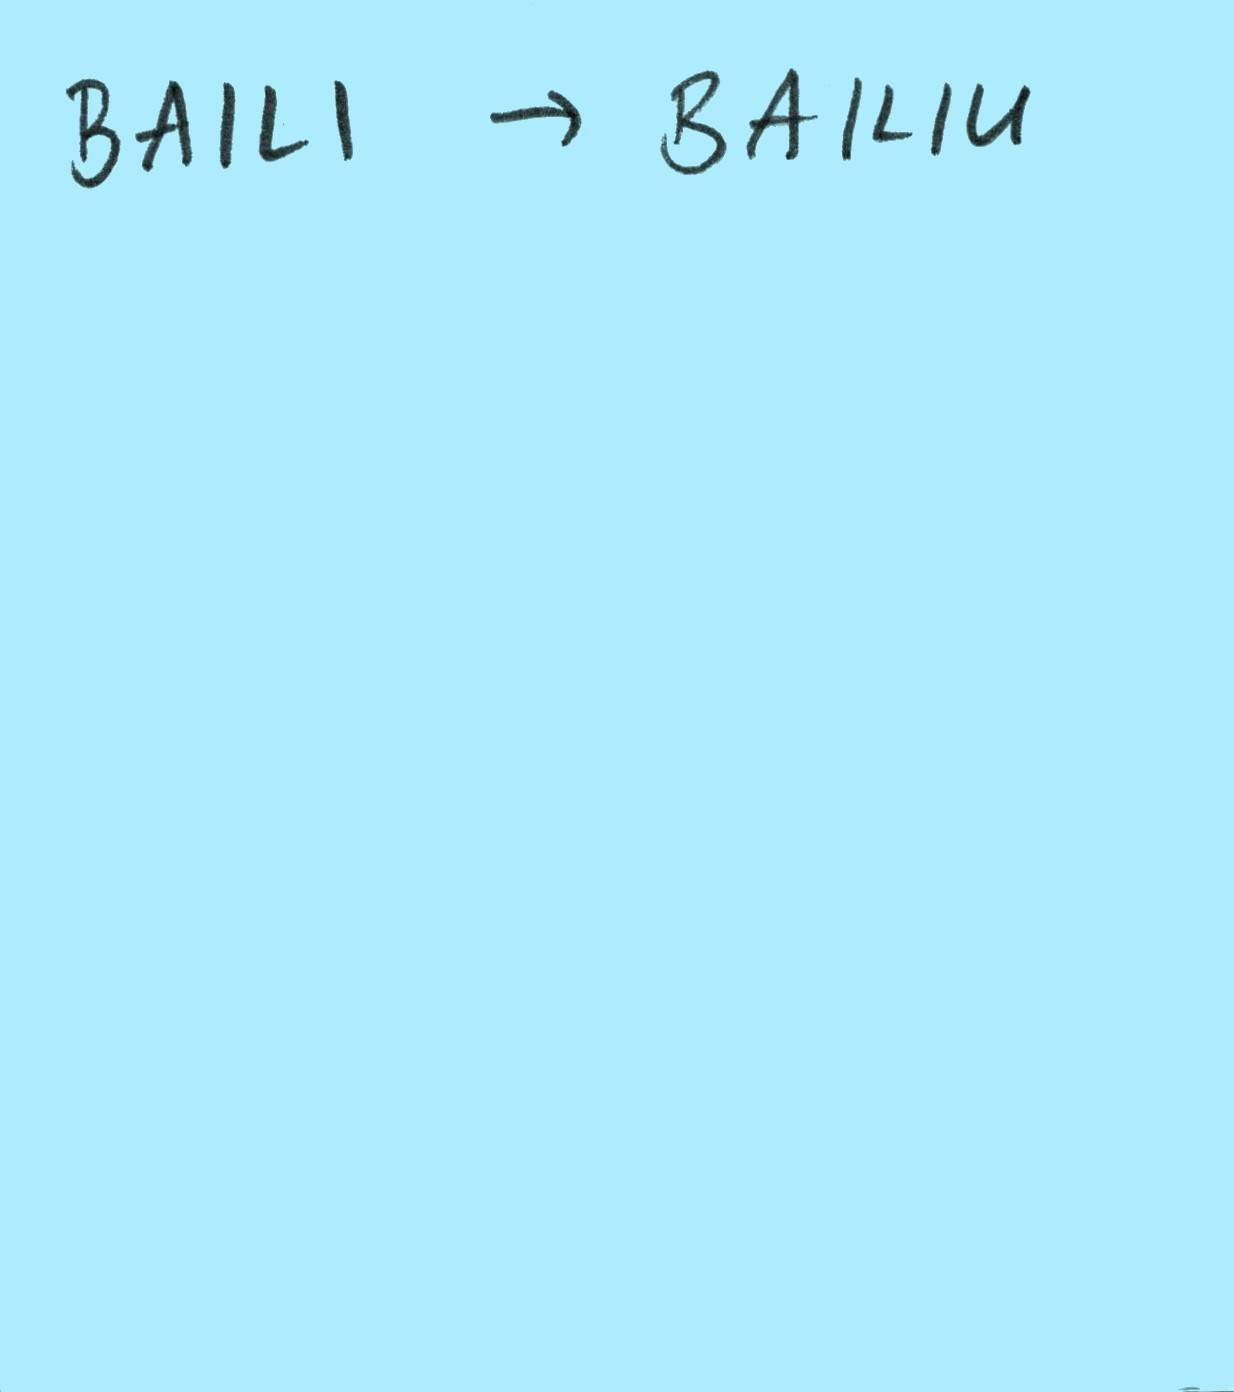 BAILI → BAILIU